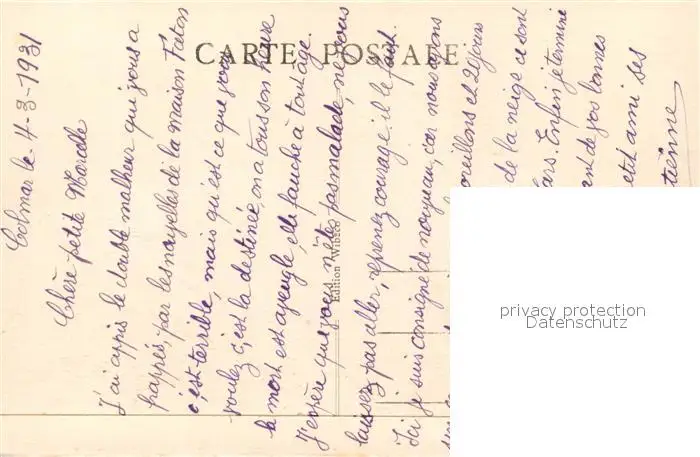 CARTE POSTALE
Edition Wibico
Colmar le 4-3-1931
Chère petite Marcelle
J'ai appis le double malheur qui vous a
frappés, par les nouvelles de la maison Faton
c'est terrible, mais qu'est ce que vous
voulez c'est la destinée, on a tous son heure
la mort est aveugle, elle fauche à tout age.
J'espère que vous n'êtes pas malade, ne vous
laissez pas aller, reprenez courage il le faut.
Ici je suis consigné de nouveau, car nous avons
ouillons et 20 jours
de la neige ce sont
ars. Enfin je termine
ant de vos bonnes
et ami ses
tienne
privacy protection
Datenschutz